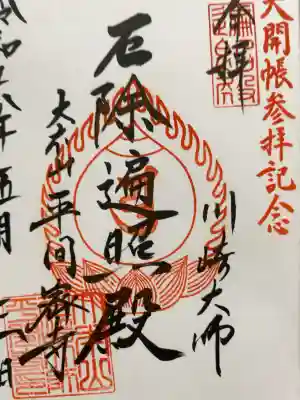 大開帳参拝記念
奉拝
川崎大師
厄除遍照殿
大本山 平間寺
令和六年五月 日